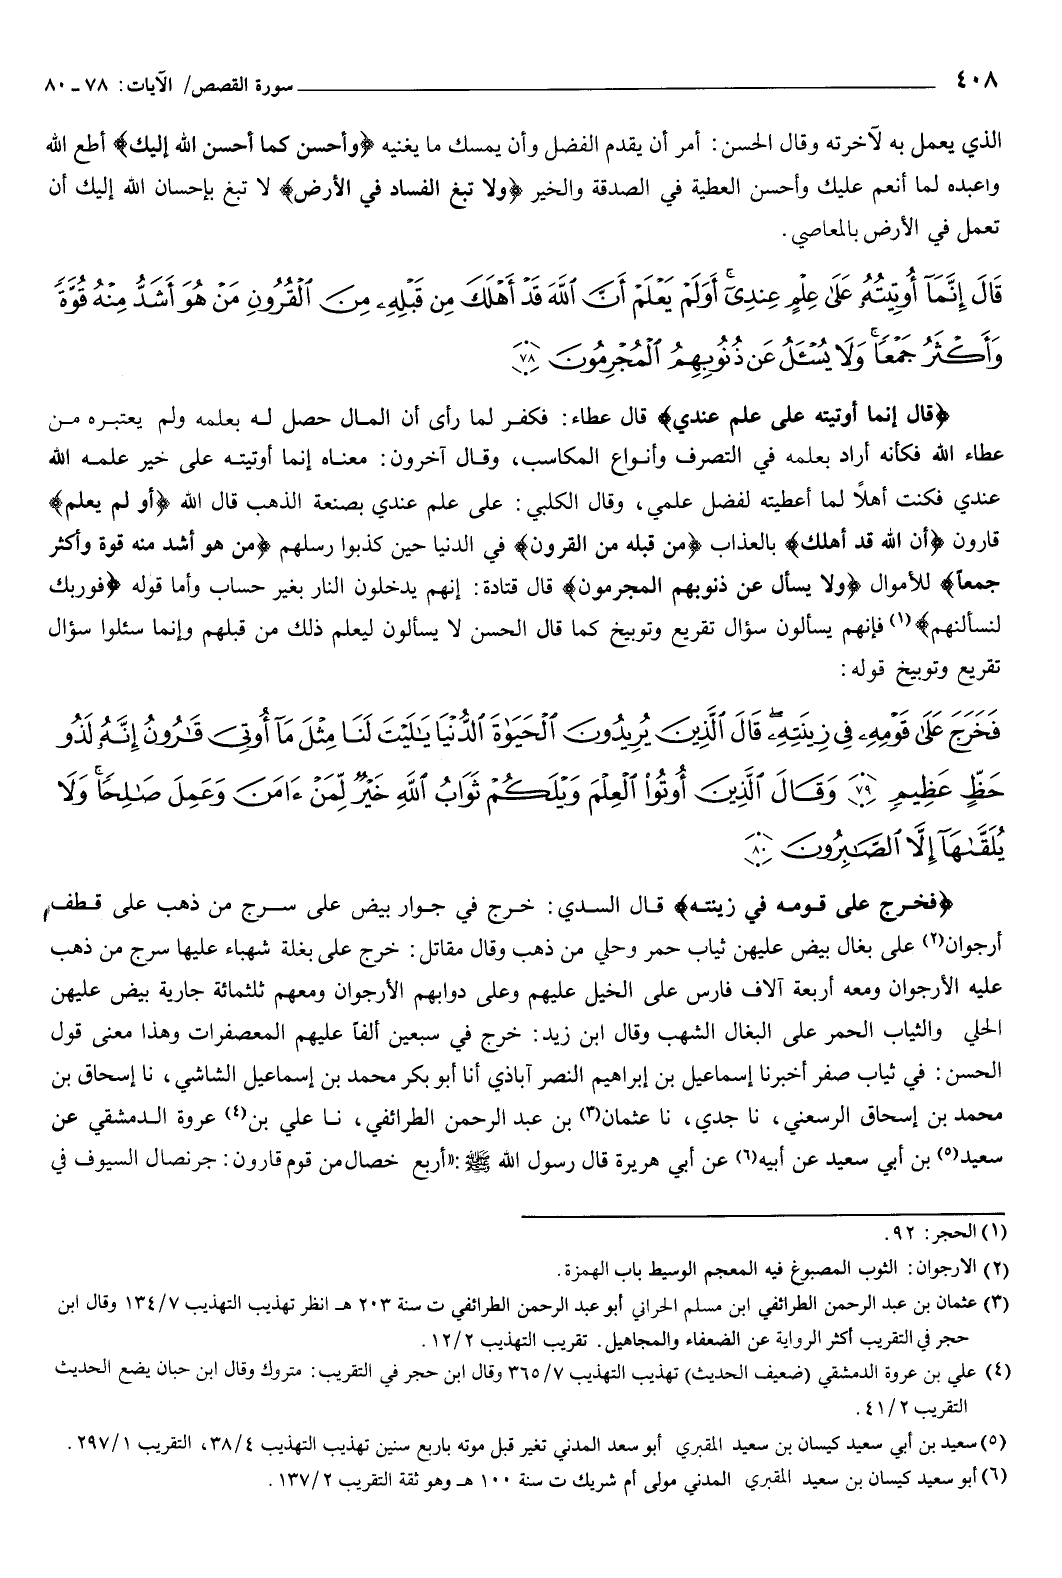 ٤٠٨ سورة القصص/ الآيات: ٧٨ ـ ٨٠
الذي يعمل به لآخرته وقال الحسن: أمر أن يقدم الفضل وأن يمسك ما يغنيه ﴿وأحسن كما أحسن الله إليك﴾ أطع الله
واعبده لما أنعم عليك وأحسن العطية في الصدقة والخير ﴿ولا تبغ الفساد في الأرض﴾ لا تبغ بإحسان الله إليك أن
تعمل في الأرض بالمعاصي.
قَالَ إِنَّمَآ أُوتِيتُهُۥ عَلَىٰ عِلْمٍ عِندِىٓ ۚ أَوَلَمْ يَعْلَمْ أَنَّ ٱللَّهَ قَدْ أَهْلَكَ مِن قَبْلِهِۦ مِنَ ٱلْقُرُونِ مَنْ هُوَ أَشَدُّ مِنْهُ قُوَّةً
وَأَكْثَرُ جَمْعًا ۚ وَلَا يُسْـَٔلُ عَن ذُنُوبِهِمُ ٱلْمُجْرِمُونَ ٧٨
﴿قال إنما أوتيته على علم عندي﴾ قال عطاء: فكفر لما رأى أن المال حصل له بعلمه ولم يعتبره من
عطاء الله فكأنه أراد بعلمه في التصرف وأنواع المكاسب، وقال آخرون: معناه إنما أوتيته على خير علمه الله
عندي فكنت أهلاً لما أعطيته لفضل علمي، وقال الكلبي: على علم عندي بصنعة الذهب قال الله ﴿أو لم يعلم﴾
قارون ﴿أن الله قد أهلك﴾ بالعذاب ﴿من قبله من القرون﴾ في الدنيا حين كذبوا رسلهم ﴿من هو أشد منه قوة وأكثر
جمعاً﴾ للأموال ﴿ولا يسأل عن ذنوبهم المجرمون﴾ قال قتادة: إنهم يدخلون النار بغير حساب وأما قوله ﴿فوربك
لنسألنهم﴾(١) فإنهم يسألون سؤال تقريع وتوبيخ كما قال الحسن لا يسألون ليعلم ذلك من قبلهم وإنما سئلوا سؤال
تقريع وتوبيخ قوله:
فَخَرَجَ عَلَىٰ قَوْمِهِۦ فِى زِينَتِهِۦ ۖ قَالَ ٱلَّذِينَ يُرِيدُونَ ٱلْحَيَوٰةَ ٱلدُّنْيَا يَـٰلَيْتَ لَنَا مِثْلَ مَآ أُوتِىَ قَـٰرُونُ إِنَّهُۥ لَذُو
حَظٍّ عَظِيمٍ ٧٩ وَقَالَ ٱلَّذِينَ أُوتُوا۟ ٱلْعِلْمَ وَيْلَكُمْ ثَوَابُ ٱللَّهِ خَيْرٌ لِّمَنْ ءَامَنَ وَعَمِلَ صَـٰلِحًا ۚ وَلَا
يُلَقَّىٰهَآ إِلَّا ٱلصَّـٰبِرُونَ ٨٠
﴿فخرج على قومه في زينته﴾ قال السدي: خرج في جوار بيض على سرج من ذهب على قطف
أرجوان(٢) على بغال بيض عليهن ثياب حمر وحلي من ذهب وقال مقاتل: خرج على بغلة شهباء عليها سرج من ذهب
عليه الأرجوان ومعه أربعة آلاف فارس على الخيل عليهم وعلى دوابهم الأرجوان ومعهم ثلثمائة جارية بيض عليهن
الحلي والثياب الحمر على البغال الشهب وقال ابن زيد: خرج في سبعين ألفاً عليهم المعصفرات وهذا معنى قول
الحسن: في ثياب صفر أخبرنا إسماعيل بن إبراهيم النصر آباذي أنا أبو بكر محمد بن إسماعيل الشاشي، نا إسحاق بن
محمد بن إسحاق الرسعني، نا جدي، نا عثمان(٣) بن عبد الرحمن الطرائفي، نا علي بن(٤) عروة الدمشقي عن
سعيد(٥) بن أبي سعيد عن أبيه(٦) عن أبي هريرة قال رسول الله ﷺ: «أربع خصال من قوم قارون: جر نصال السيوف في
(١) الحجر: ٩٢.
(٢) الارجوان: الثوب المصبوغ فيه المعجم الوسيط باب الهمزة.
(٣) عثمان بن عبد الرحمن الطرائفي ابن مسلم الحراني أبو عبد الرحمن الطرائفي ت سنة ٢٠٣ هـ انظر تهذيب التهذيب ١٣٤/٧ وقال ابن
حجر في التقريب أكثر الرواية عن الضعفاء والمجاهيل. تقريب التهذيب ١٢/٢.
(٤) علي بن عروة الدمشقي (ضعيف الحديث) تهذيب التهذيب ٣٦٥/٧ وقال ابن حجر في التقريب: متروك وقال ابن حبان يضع الحديث
التقريب ٤١/٢.
(٥) سعيد بن أبي سعيد كيسان بن سعيد المقبري أبو سعد المدني تغير قبل موته باربع سنين تهذيب التهذيب ٣٨/٤، التقريب ٢٩٧/١.
(٦) أبو سعيد كيسان بن سعيد المقبري المدني مولى أم شريك ت سنة ١٠٠ هـ وهو ثقة التقريب ١٣٧/٢.